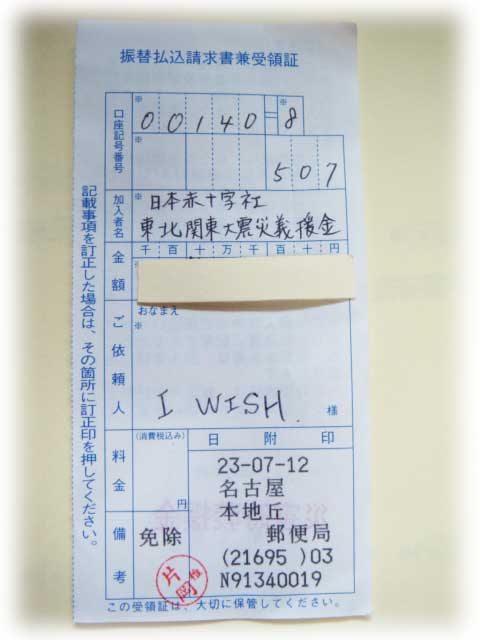 振替払込請求書兼受領証
口座記号番号
※ 00140=※ 8
507
加入者名
※ 日本赤十字社
東北関東大震災義援金
金額
千百十万千百十円
ご依頼人
おなまえ
※
I WISH
様
料金
(消費税込み)
円
日附印
23-07-12
名古屋
本地丘
郵便局
(21695 )03
N91340019
備考
免除
片岡
この受領証は、大切に保管してください。
記載事項を訂正した場合は、その箇所に訂正印を押してください。